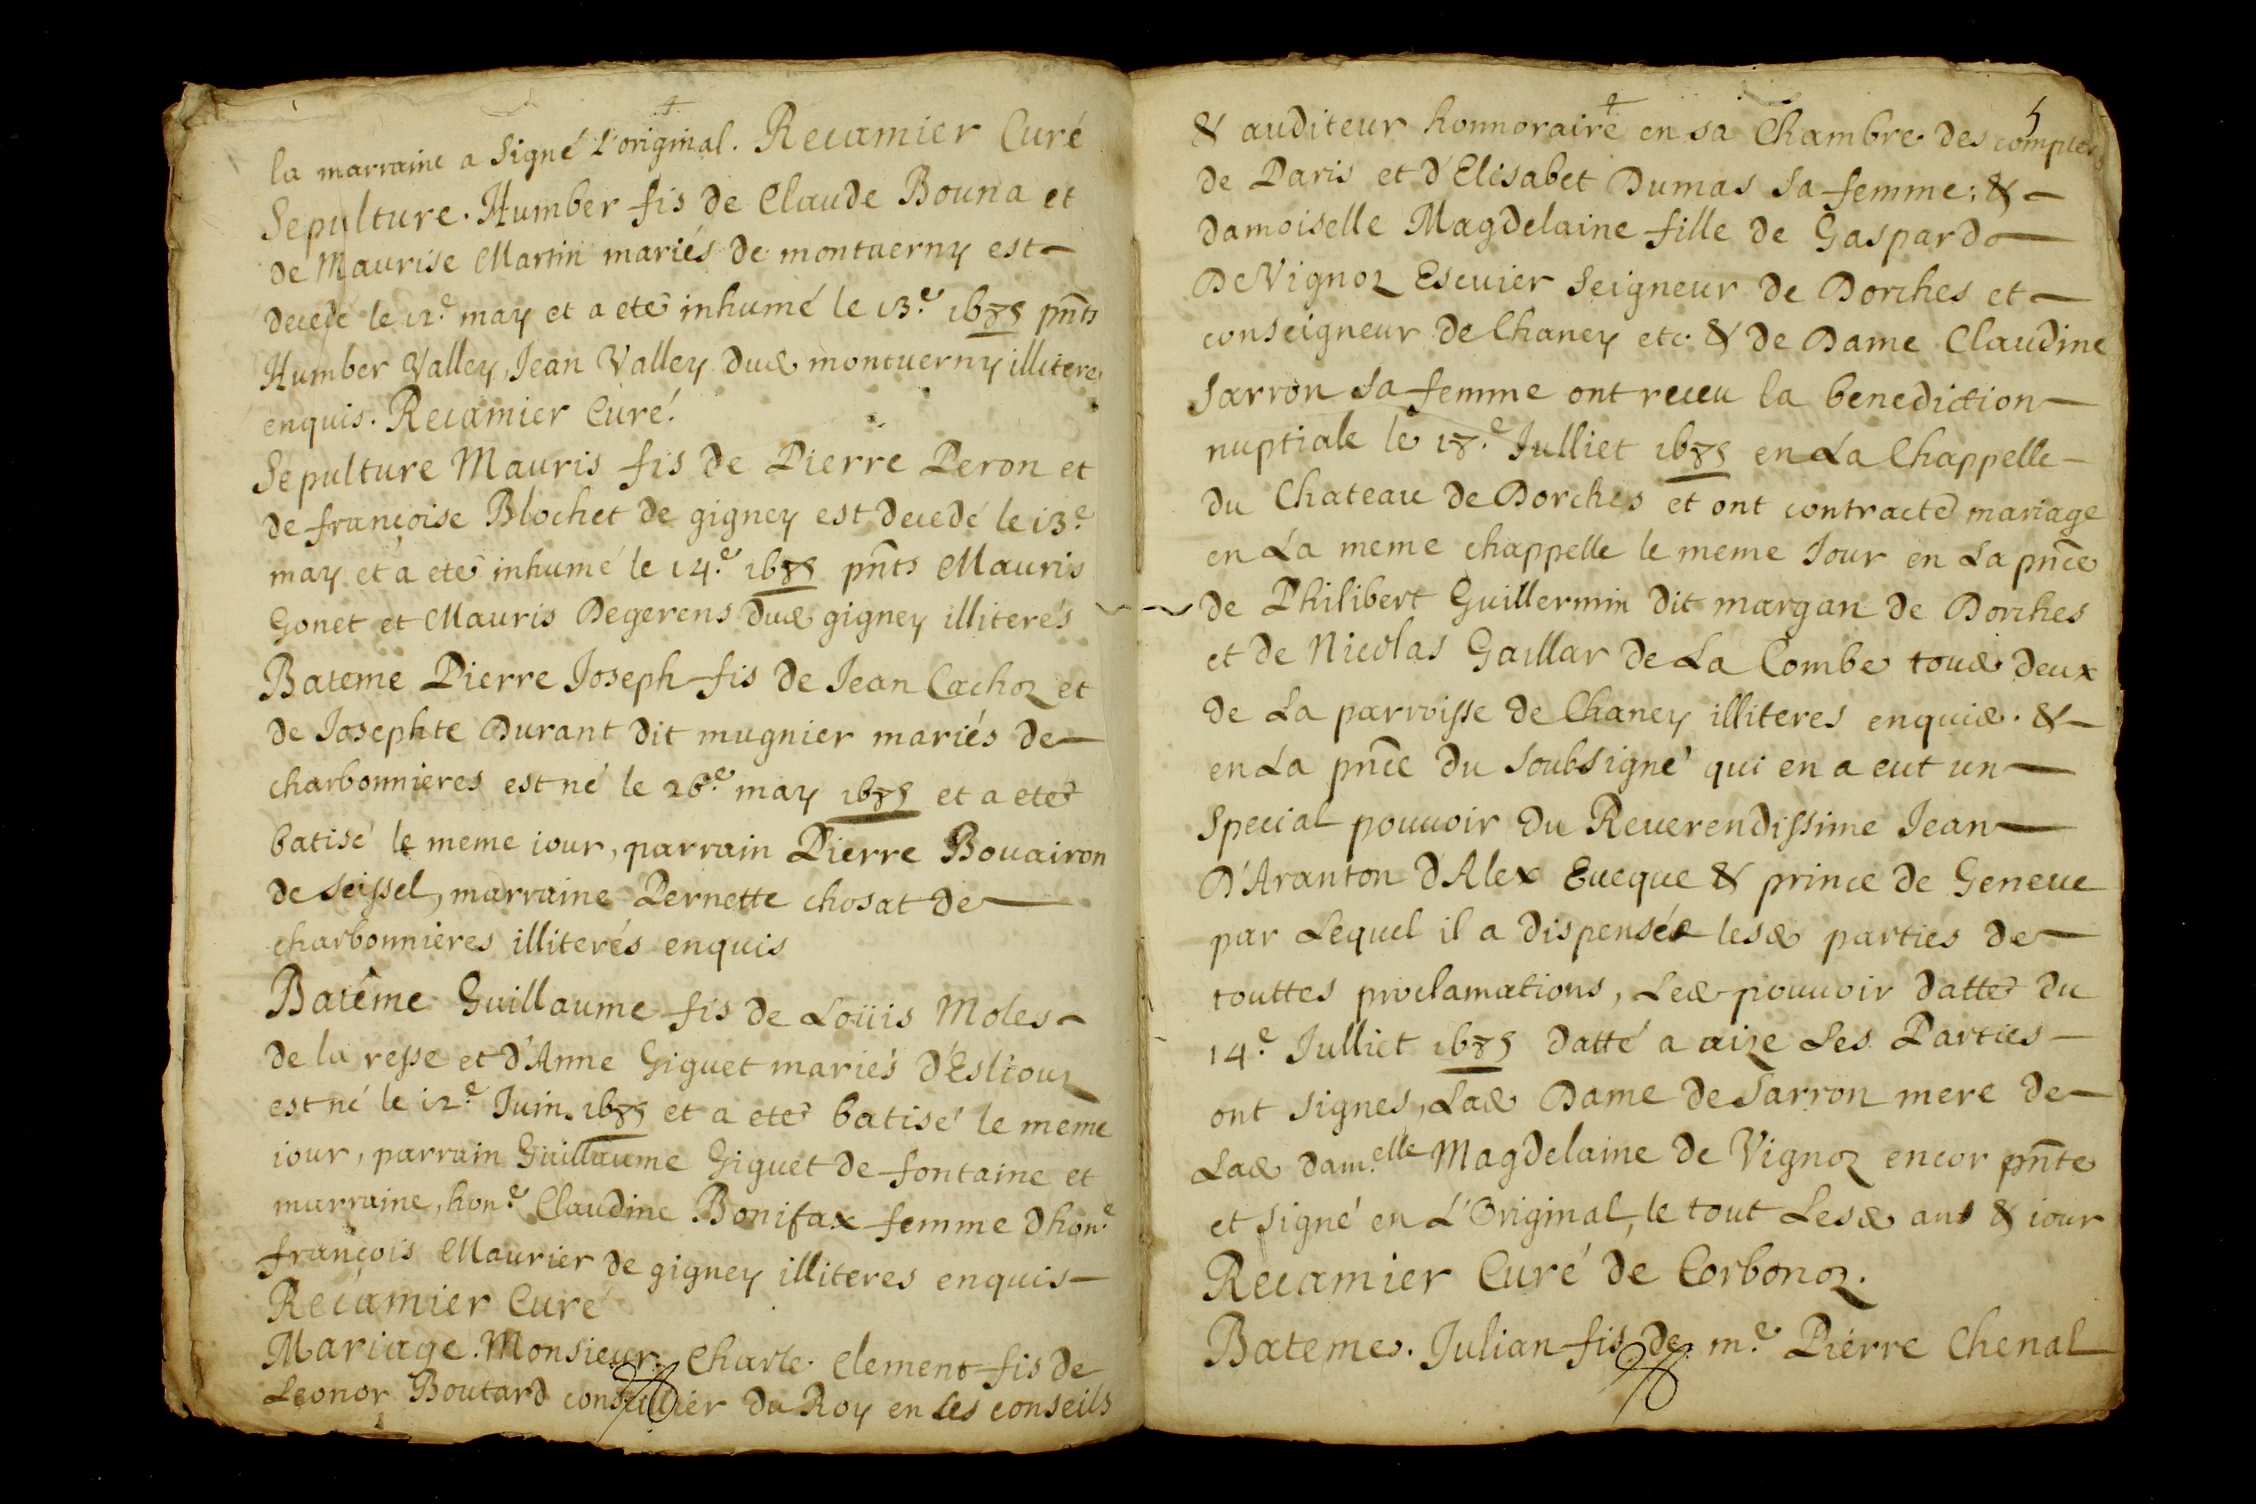 la marraine a Signé L'original. Recamier Curé
Sepulture. Humber fis de Claude Bouna et
de Maurise Martin mariés de montuerny est
decedé le 12.e may et a eté inhumé le 13.e 1685 pnts
Humber Valley, Jean Valley dud montuerny illiteres
enquis. Recamier Curé.
Sepulture Mauris fis de Pierre Peron et
de françoise Blochet de gigney est decedé le 13.e
may et a eté inhumé le 14.e 1685 pnts Mauris
Gonet et Mauris Degerens dud gigney illiterés
Bateme Pierre Joseph fis de Jean Cachoz et
de Josephte Durant dit mugnier mariés de
charbonnieres est né le 26.e may 1685 et a eté
batisé le meme iour, parrain Pierre Bouairon
de seissel, marraine Pernette chosat de
charbonnieres illiterés enquis
Batême Guillaume fis de Loüis Moles
de la resse et d'Anne Giguet mariés d'Eslioux
est né le 12.e Juin. 1685 et a eté batisé le meme
iour, parrain Guillaume Giguet de fontaine et
marraine, hon.e Claudine Bonifax femme dhon.e
françois Maurier de gigney illiteres enquis
Recamier Curé
Mariage. Monsieur Charle Clement fis de
Leonor Boutard conseillier du Roy en ses conseils
5
& auditeur honnoraire en sa Chambre des comptes
de Paris et d'Elisabet Dumas sa femme; &
damoiselle Magdelaine fille de Gaspard
De Vignoz Escuier Seigneur de Dorches et
conseigneur de Chaney etc. & de Dame Claudine
Sarron sa femme ont receu la benediction
nuptiale le 18.e Julliet 1685 en La Chappelle
du Chateau de Dorches et ont contracté mariage
en La meme chappelle le meme Jour en La pnce
de Philibert Guillermin dit margan de Dorches
et de Nicolas Gaillar de La Combe toud deux
de La parroisse de Chaney illiteres enquis. &
en La pnce du soubsigné qui en a eut un
Special pouuoir du Reuerendissime Jean
D'Aranton d'Alex Eueque & prince de Geneue
par Lequel il a dispensée lesd parties de
touttes proclamations, Led pouuoir datté du
14.e Julliet 1685 datté a aize Les Parties
ont signes, Lad Dame de Sarron mere de
Lad dam.elle Magdelaine de Vignoz encor pnte
et signé en L'Original, le tout Lesd ans & iour
Recamier Curé de Corbonoz.
Bateme. Julian fis de m.e Pierre Chenal